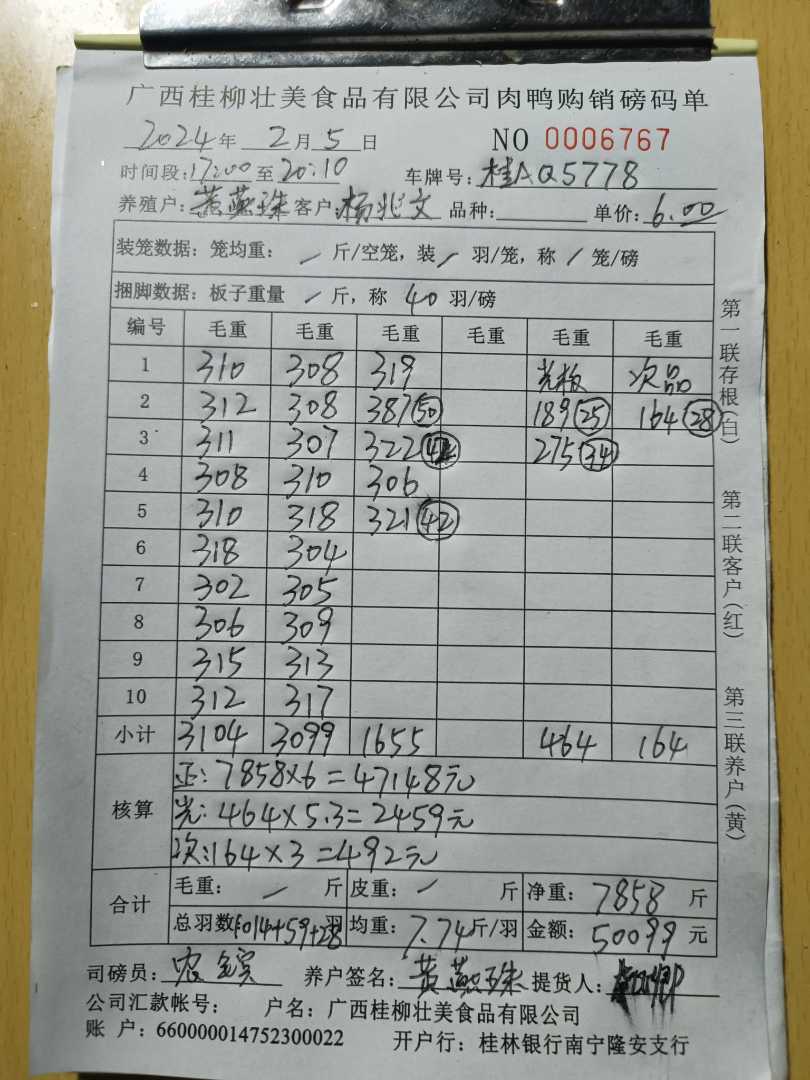 广西桂柳壮美食品有限公司肉鸭购销磅码单
2024年 2月 5日 NO 0006767
时间段:17:00至20:10 车牌号:桂AQ5778
养殖户:黄燕珠 客户:杨兆文 品种: 单价:6.00
装笼数据:笼均重: / 斤/空笼,装 / 羽/笼,称 / 笼/磅
捆脚数据:板子重量 / 斤,称 40 羽/磅
编号 毛重 毛重 毛重 毛重 毛重 毛重
1 310 308 319 光板 次品
2 312 308 387(50) 189(25) 164(28)
3 311 307 322 275(34)
4 308 310 306
5 310 318 321(42)
6 318 304
7 302 305
8 306 309
9 315 313
10 312 317
小计 3104 3099 1655 464 164
核算 正:7858×6=47148元
光:464×5.3=2459元
次:164×3=492元
合计 毛重: / 斤 皮重: / 斤 净重: 7858 斤
总羽数:1014+59+28羽 均重:7.74斤/羽 金额: 50099 元
司磅员: 养户签名:黄燕珠 提货人:
公司汇款帐号: 户名:广西桂柳壮美食品有限公司
账 户:660000014752300022 开户行:桂林银行南宁隆安支行
第一联存根(白)
第二联客户(红)
第三联养户(黄)